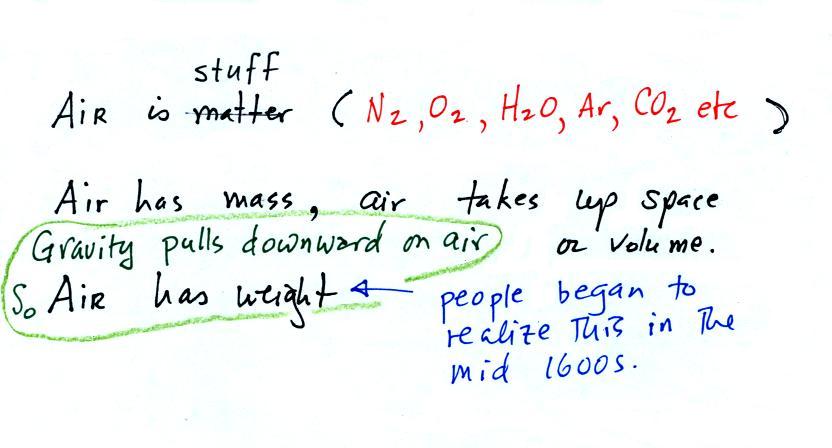 stuff
Air is matter (N₂, O₂, H₂O, Ar, CO₂ etc)
Air has mass, air takes up space
or volume.
Gravity pulls downward on air
So Air has weight ←
people began to
realize this in the
mid 1600s.